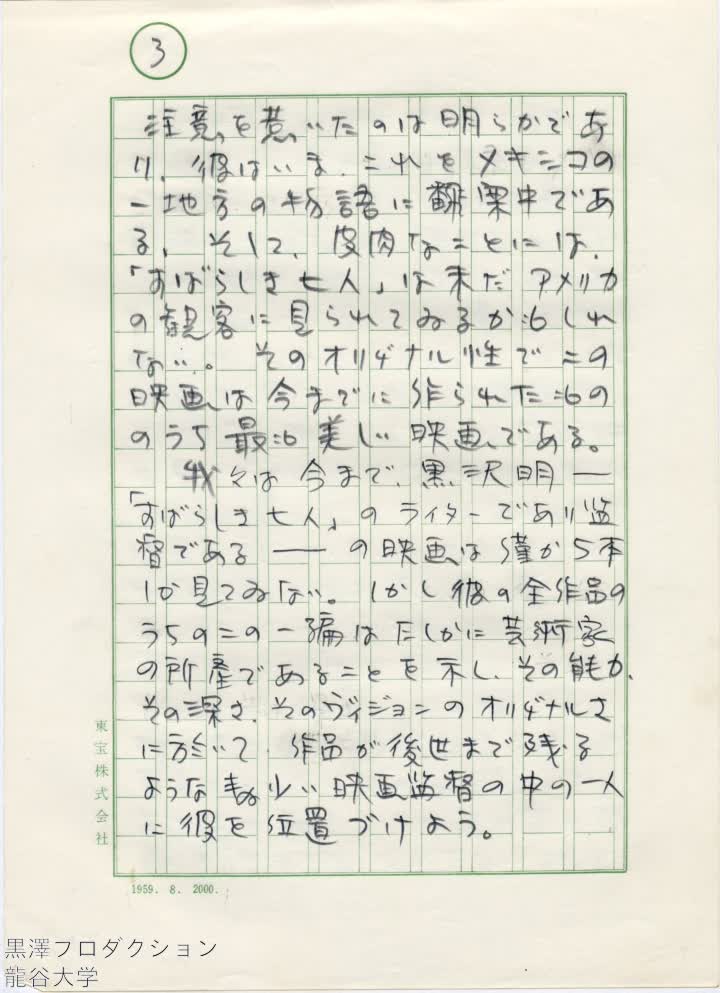 3
注意を惹いたのは明らかであ
り、彼はいま、これをメキシコの
一地方の物語に翻案中であ
る。そして、皮肉なことには、
「すばらしき七人」は未だアメリカ
の観客に見られてゐるかもしれ
ない。そのオリヂナル性でこの
映画は今までに作られたもの
のうち最も美しい映画である。
我々は今まで、黒沢明――
「すばらしき七人」のライターであり監
督である――の映画は僅か5本
しか見てゐない。しかし彼の全作品の
うちのこの一編はたしかに芸術家
の所産であることを示し、その能力、
その深さ、そのヴィジョンのオリヂナルさ
に於いて、作品が後世まで残る
ような数少い映画監督の中の一人
に彼を位置づけよう。
東宝株式会社
1959. 8. 2000.
黒澤プロダクション
龍谷大学